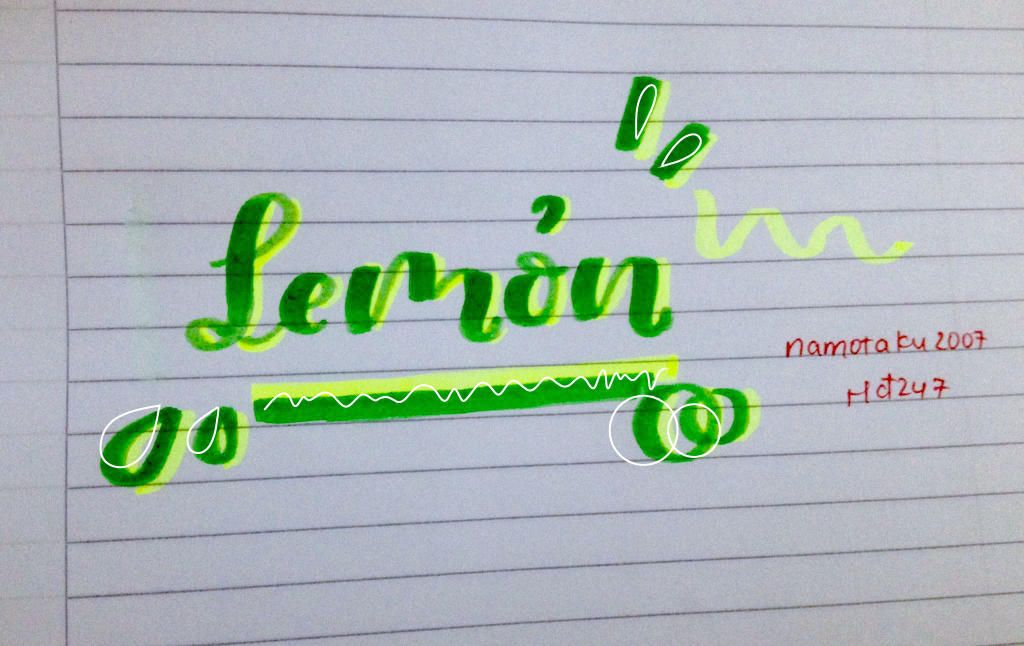 Lemỏn
namotaku2007
Hđ247